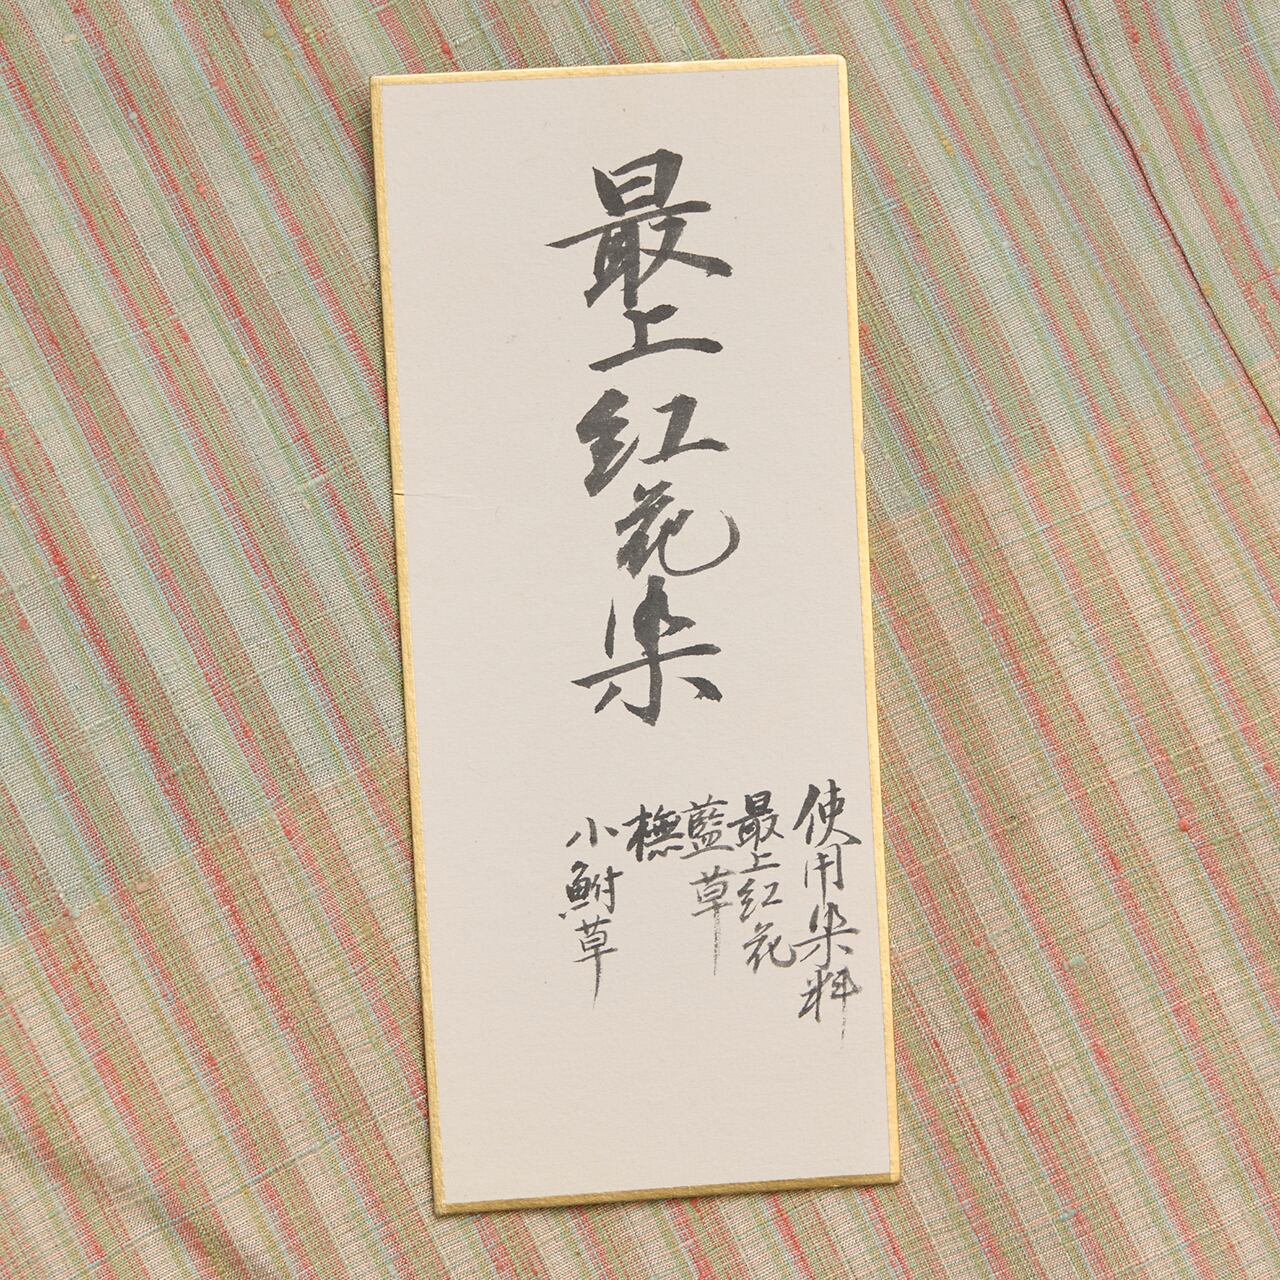 最上紅花染
使用染料
最上紅花
藍草
橅
小鮒草